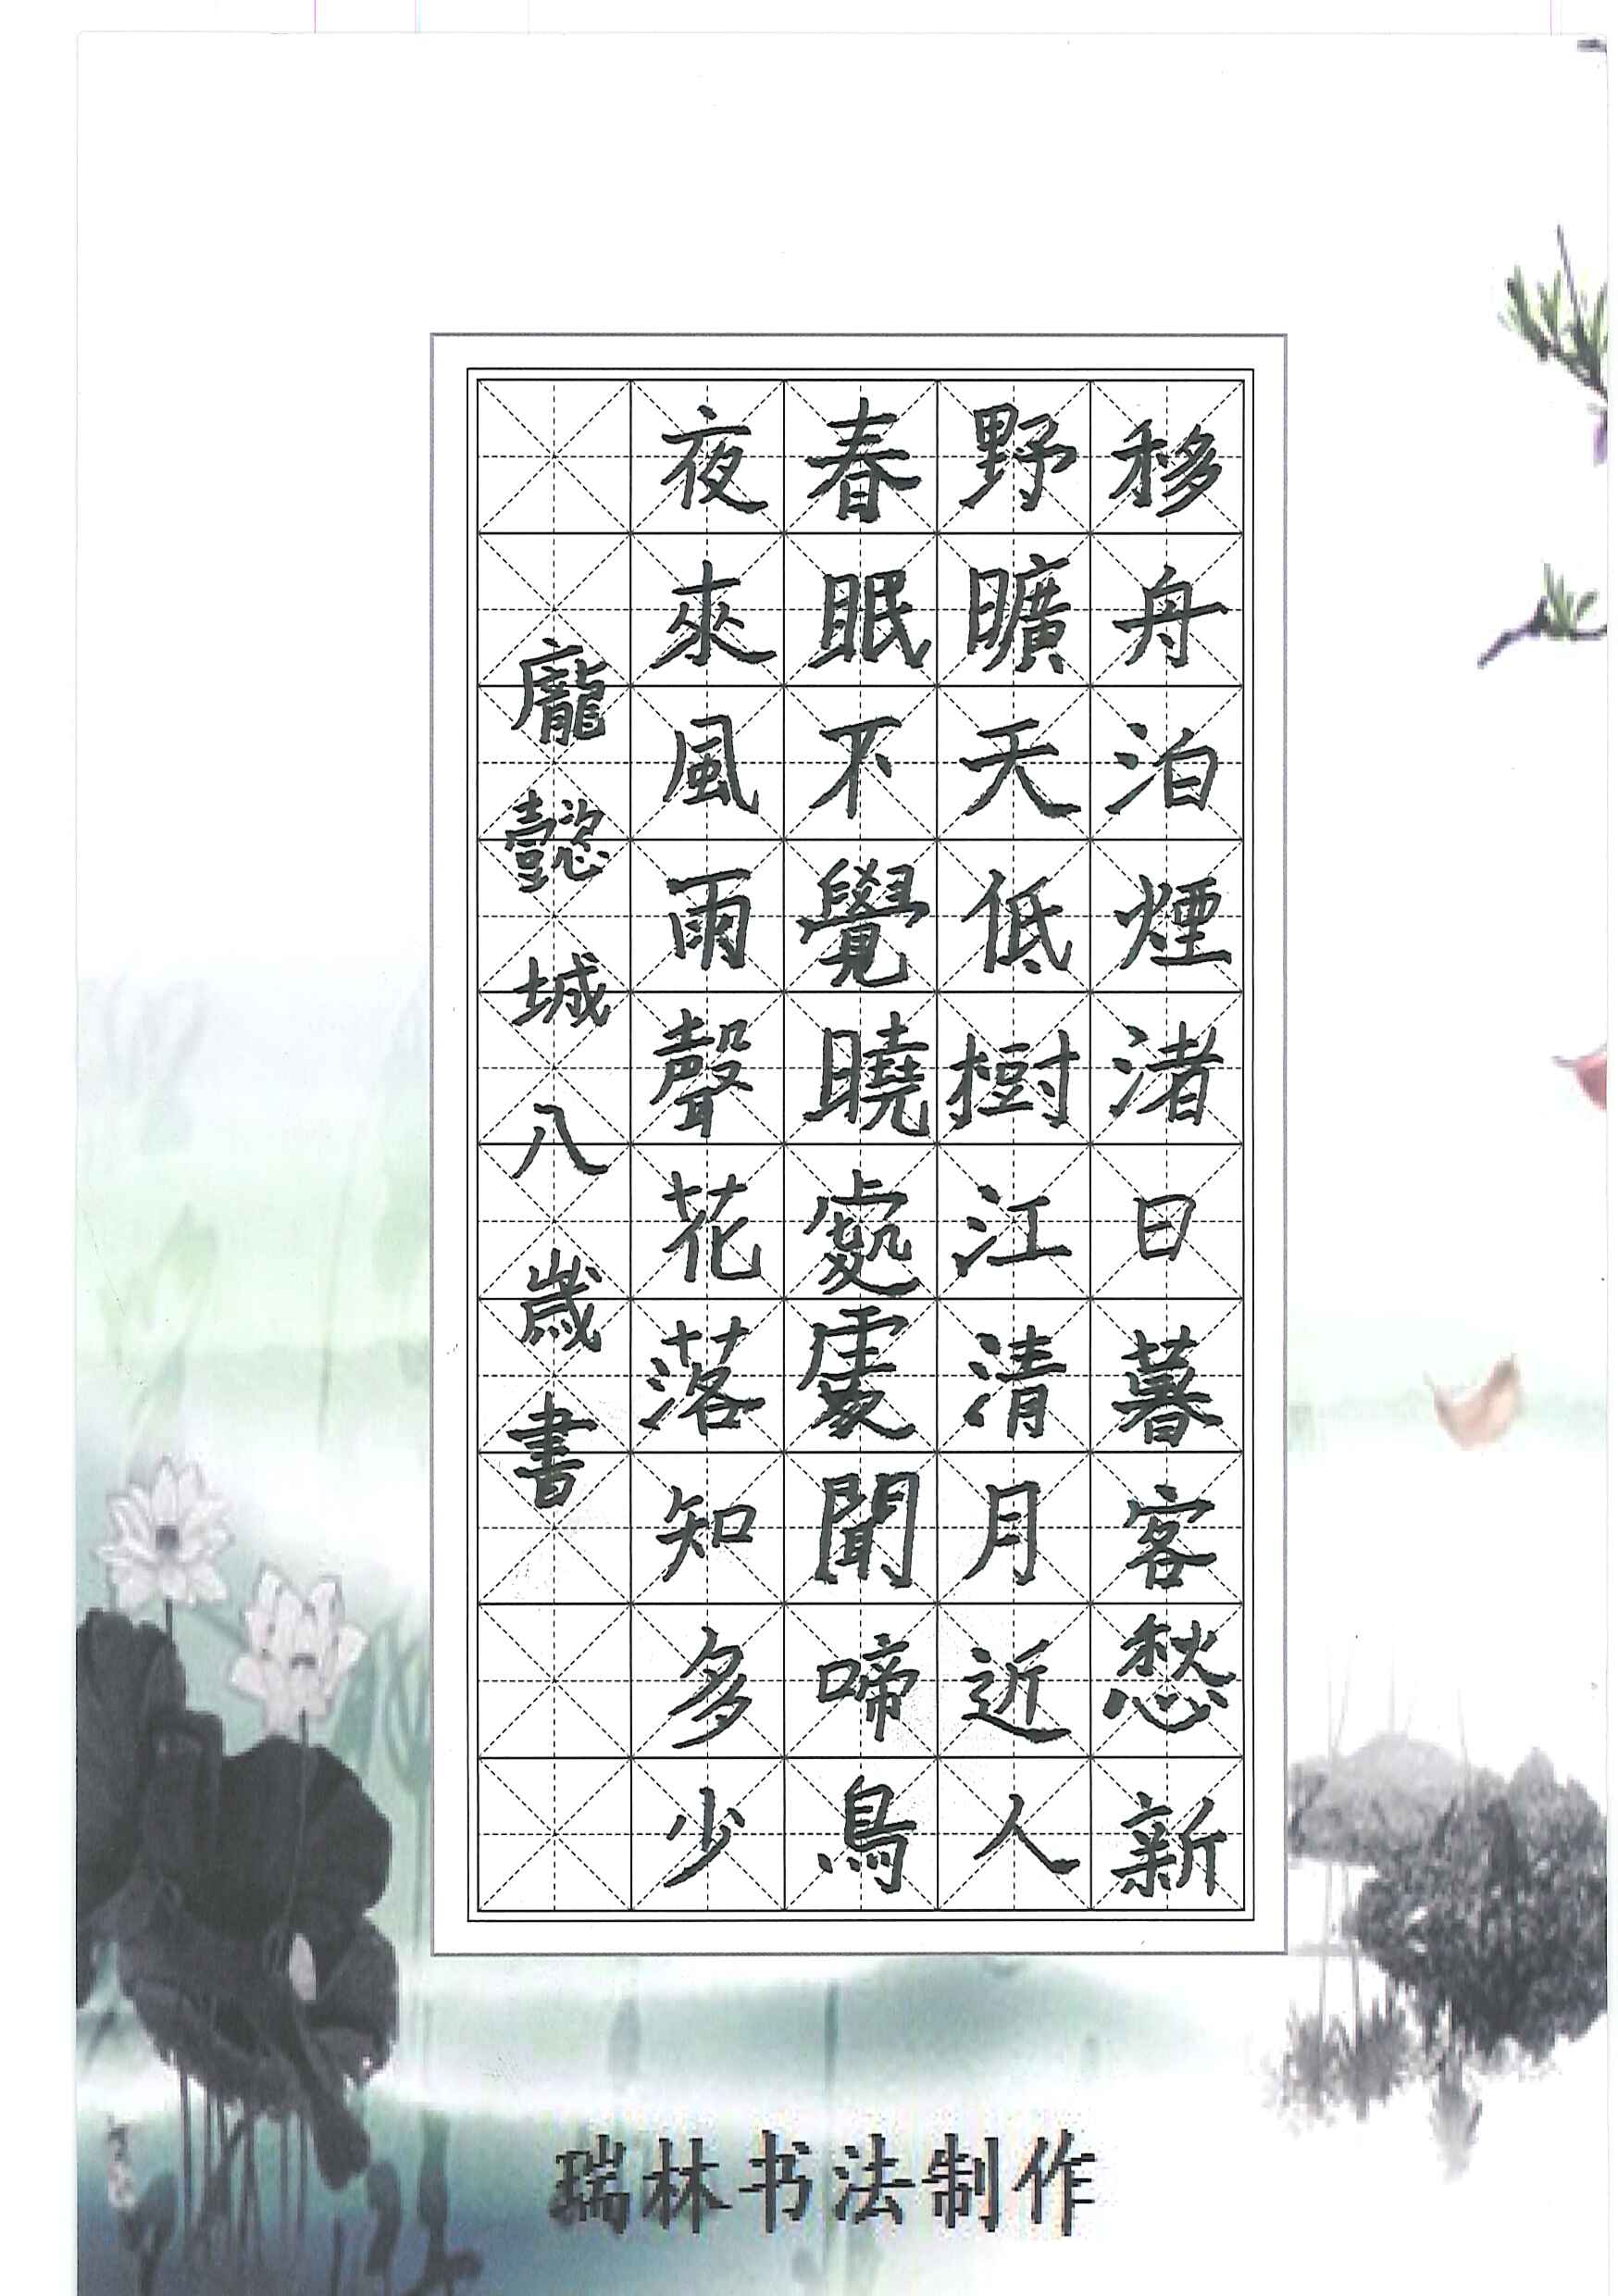 移舟泊煙渚日暮客愁新
野曠天低樹江清月近人
春眠不覺曉處處聞啼鳥
夜來風雨聲花落知多少
龐懿城八歲書
瑞林书法制作